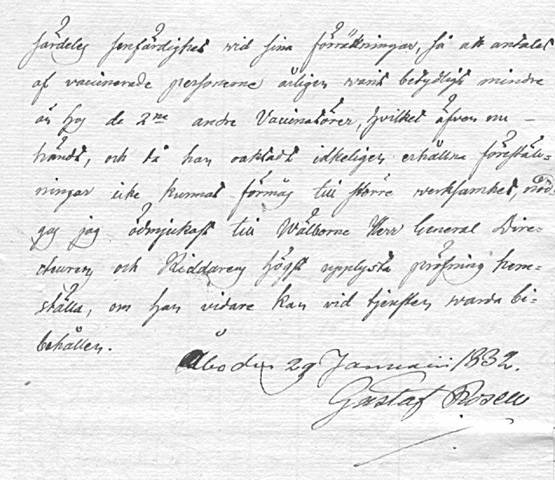 särdeles senfärdighet wid sina förrättningar, så att antalet
af vaccinerade personerne årligen warit betydligt mindre
än hos de 2ne andre Vaccinatörer, hvilket äfven nu
händt, och då han oaktadt idkeligen erhållne föreställ-
ningar icke kunnat förmås till större werksamhet, nöd-
gas jag ödmjukast till Wälborne Herr General Dire-
cteuren och Riddarens högst upplysta pröfning hem-
ställa, om han vidare kan vid tjensten warda bi-
behållen.
Åbo den 29 Januarii 1832.
Gustaf Rosen